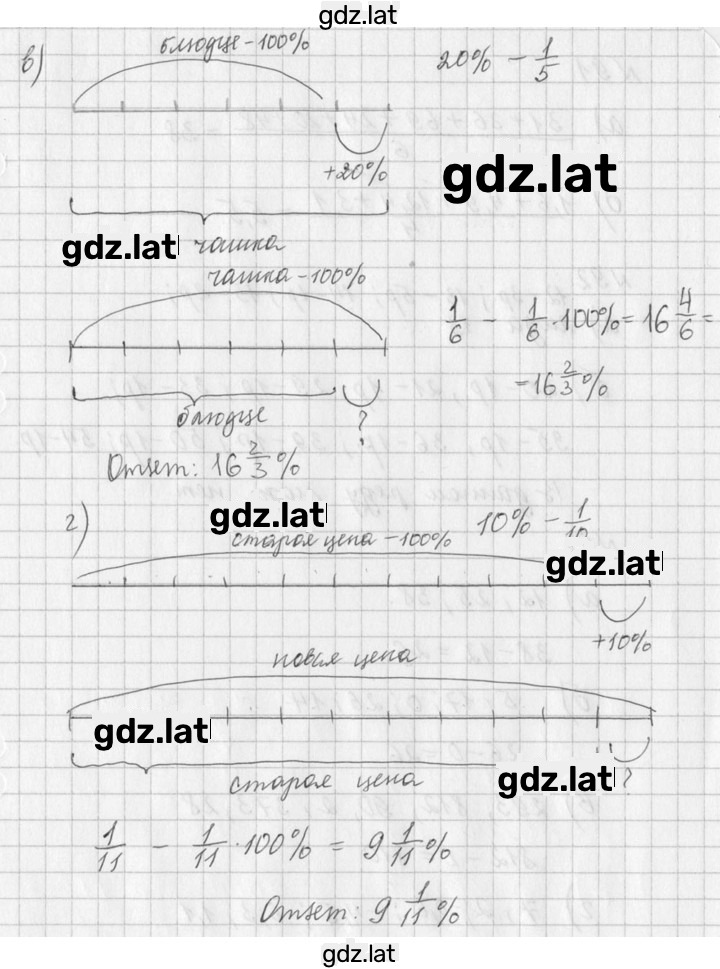 gdz.lat
в) блюдце - 100% 20% - 1/5
+20%
gdz.lat
gdz.lat чашка
чашка - 100%
1/6 - 1/6 · 100% = 16 4/6 =
= 16 2/3 %
блюдце ?
Ответ: 16 2/3 %
gdz.lat
г) старая цена - 100% 10% - 1/10
gdz.lat
+10%
новая цена
gdz.lat
gdz.lat ?
старая цена
1/11 - 1/11 · 100% = 9 1/11 %
Ответ: 9 1/11 %
gdz.lat